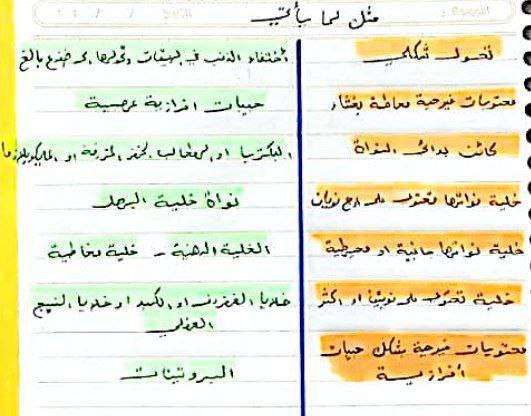 مثل لما يأتي
تحول شكلي
أختفاء الذنب في اليرقات وتحولها الى ضفدع بالغ
محتويات غير حية محاطة بغشاء
حبيبات افرازية عصبية
كائن بدائي النواة
البكتريا او الطحالب الخضر المزرقة او المايكوبلازما
خلية نواتها تحتوي على اربع نويات
نواة خلية البصل
خلية نواتها جانبية او محيطية
الخلية الدهنية - خلية مخاطية
خلية تحتوي على نويتين او اكثر
خلايا الغضروف او الكبد او خلايا النسيج
العضلي
محتويات غير حية بشكل حبيبات
أفرازية
البروتينات